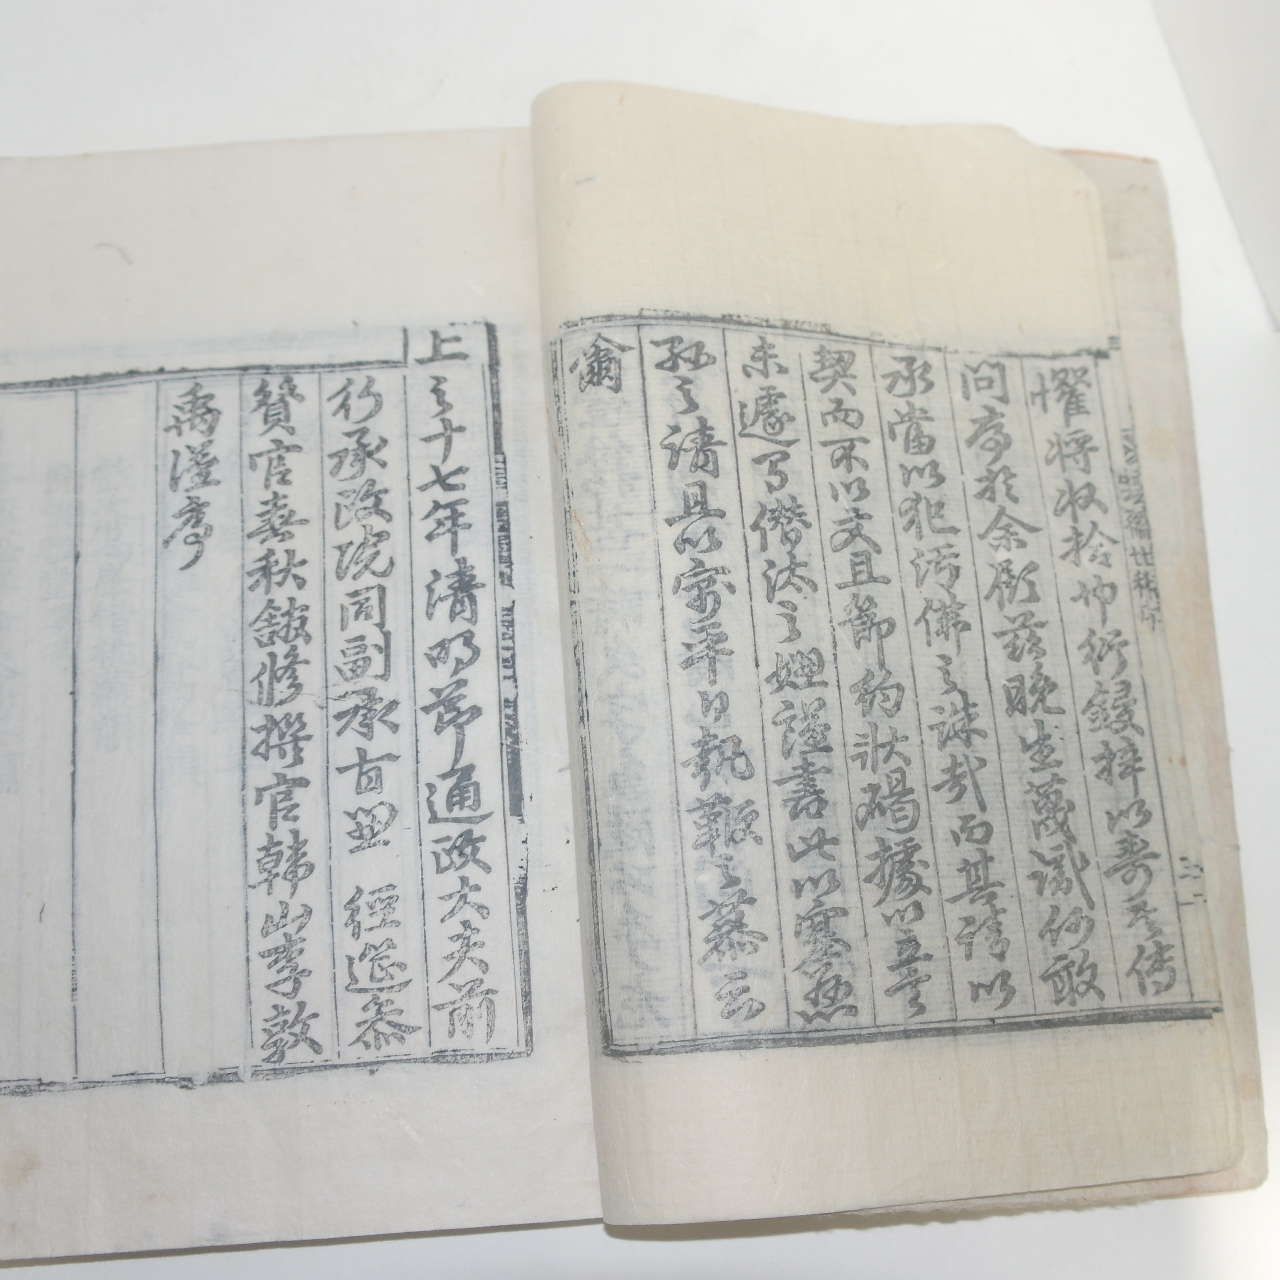 懼將收拾印行鋟梓以壽其傳
問序於余顧玆晚生蔑識何敢
承當以犯汚佛之誅哉而其請以
契而不以文且節約狀碣據以立言
未遽為僭汰之嫌謹書此以塞烝
孫之請且以寓平日執鞭之慕云
爾
上之十七年淸明節通政大夫前
行承政院同副承旨兼 經筵參
贊官春秋館修撰官韓山李敦
禹謹序